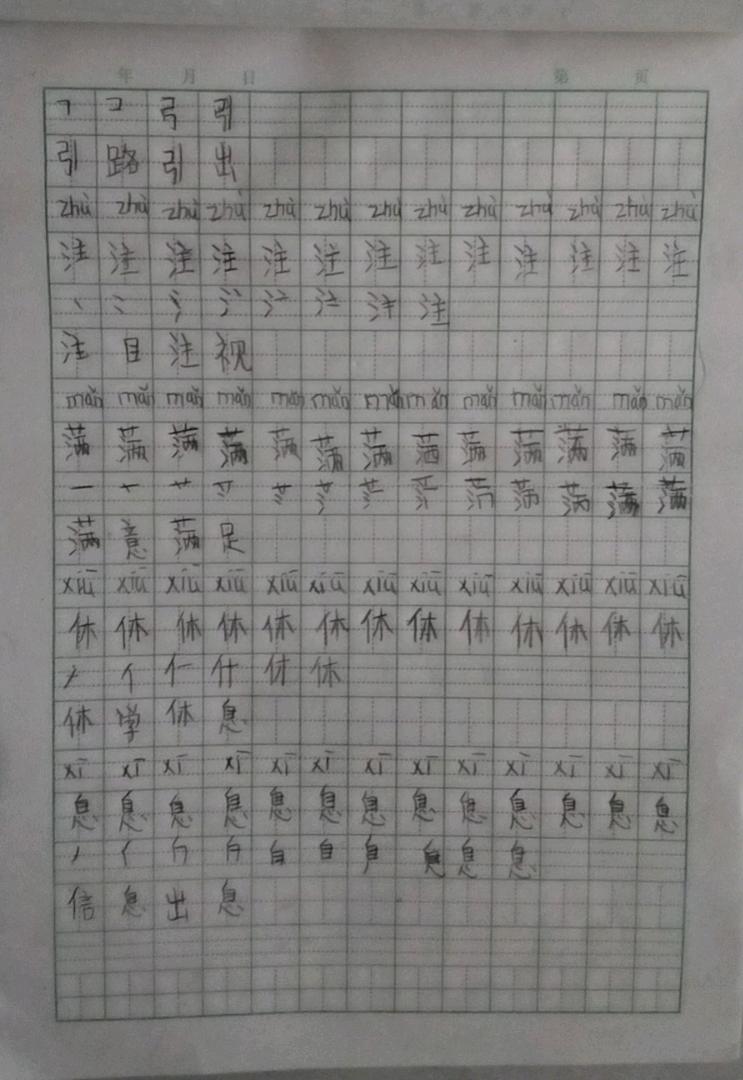 年 月 日 第 页
㇕ コ 弓 引
引 路 引 出
zhù zhù zhù zhù zhù zhù zhù zhù zhù zhù zhù zhù zhù
注 注 注 注 注 注 注 注 注 注 注 注 注
丶 冫 氵 注
注 目 注 视
mǎn mǎn mǎn mǎn mǎn mǎn mǎn mǎn mǎn mǎn mǎn mǎn mǎn
满 满 满 满 满 满 满 满 满 满 满 满 满
一 十 艹 满 满
满 意 满 足
xiū xiū xiū xiū xiū xiū xiū xiū xiū xiū xiū xiū xiū
休 休 休 休 休 休 休 休 休 休 休 休 休
丿 亻 仁 什 休 休
休 学 休 息
xī xī xī xī xī xī xī xī xī xī xī xī xī
息 息 息 息 息 息 息 息 息 息 息 息 息
丿 亻 白 自 自 息 息 息
信 息 出 息